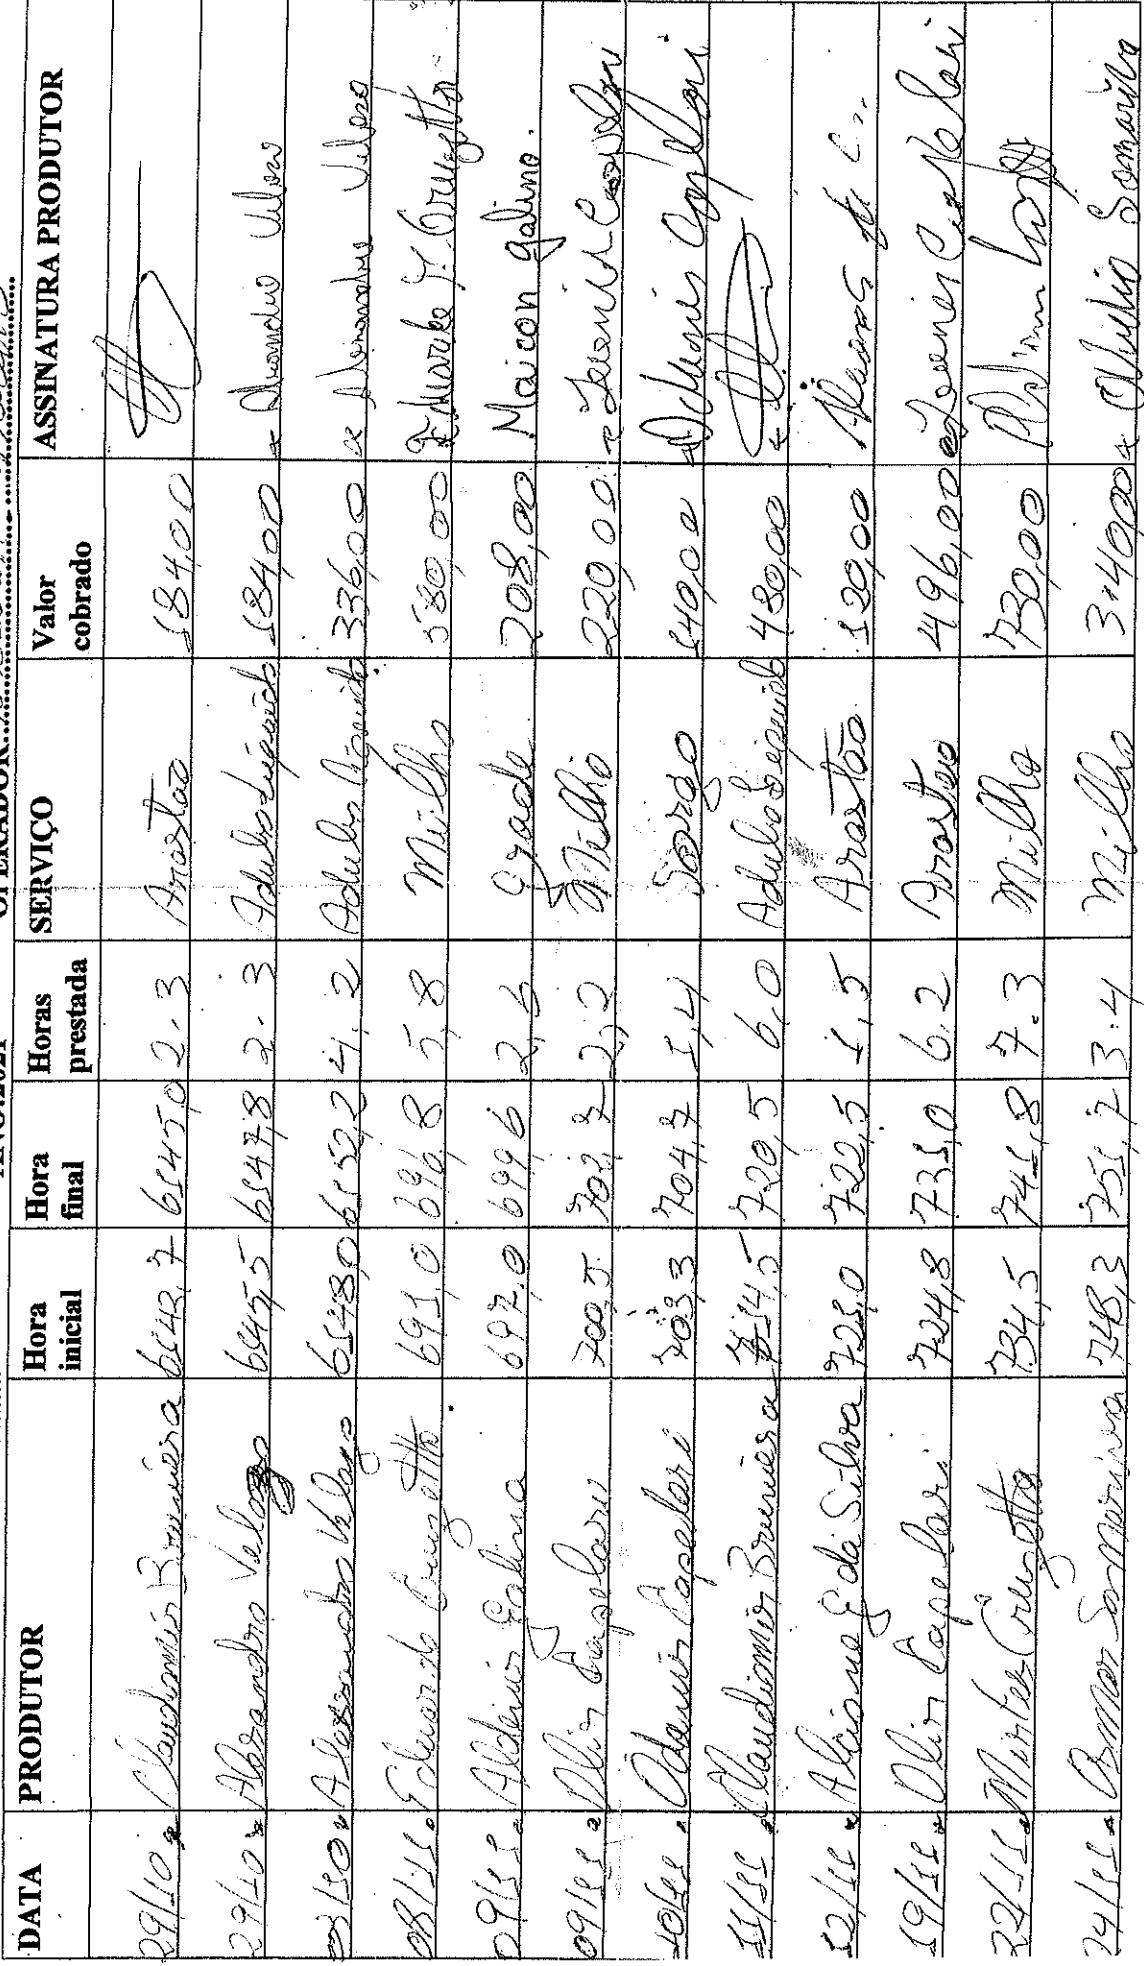 ANO:2021 OPERADOR
DATA PRODUTOR Hora inicial Hora final Horas prestada SERVIÇO Valor cobrado ASSINATURA PRODUTOR
29/10 Claudiomir Bruniera 6543,7 6545,0 2.3 Arastão 184,00
29/10 Alexandro Velozo 6545,5 6547,8 2.3 Adubo Líquido 184,00 Velozo
03/10 Alexsandro Velozo 6548,0 6552,2 4,2 Adubo Líquido 336,00 Alexandro Velozo
08/11 Eduardo Cruzetta 691,0 696,8 5,8 Milho 580,00 Eduardo J. Cruzetta
09/11 Aldair Galina 697,0 699,6 2,6 Grade 208,00 Maicon galino.
09/11 Olir Capelari 700,5 702,7 2,2 Milho 220,00
10/11 Odanir Capelari 703,3 704,7 1,4 Sorgo 140,00
11/11 Claudiomir Bruniera 714,5 720,5 6,0 Adubo Líquido 480,00
12/11 Alciano G da Silva 721,0 722,5 1,5 Arastão 120,00
19/11 Olir Capelari 724,8 731,0 6.2 Arastão 496,00
22/11 Mirtes Cruzetta 734,5 741,8 7.3 Milho 730,00
24/11 Osmar San Marino 748,3 751,7 3.4 Milho 34000